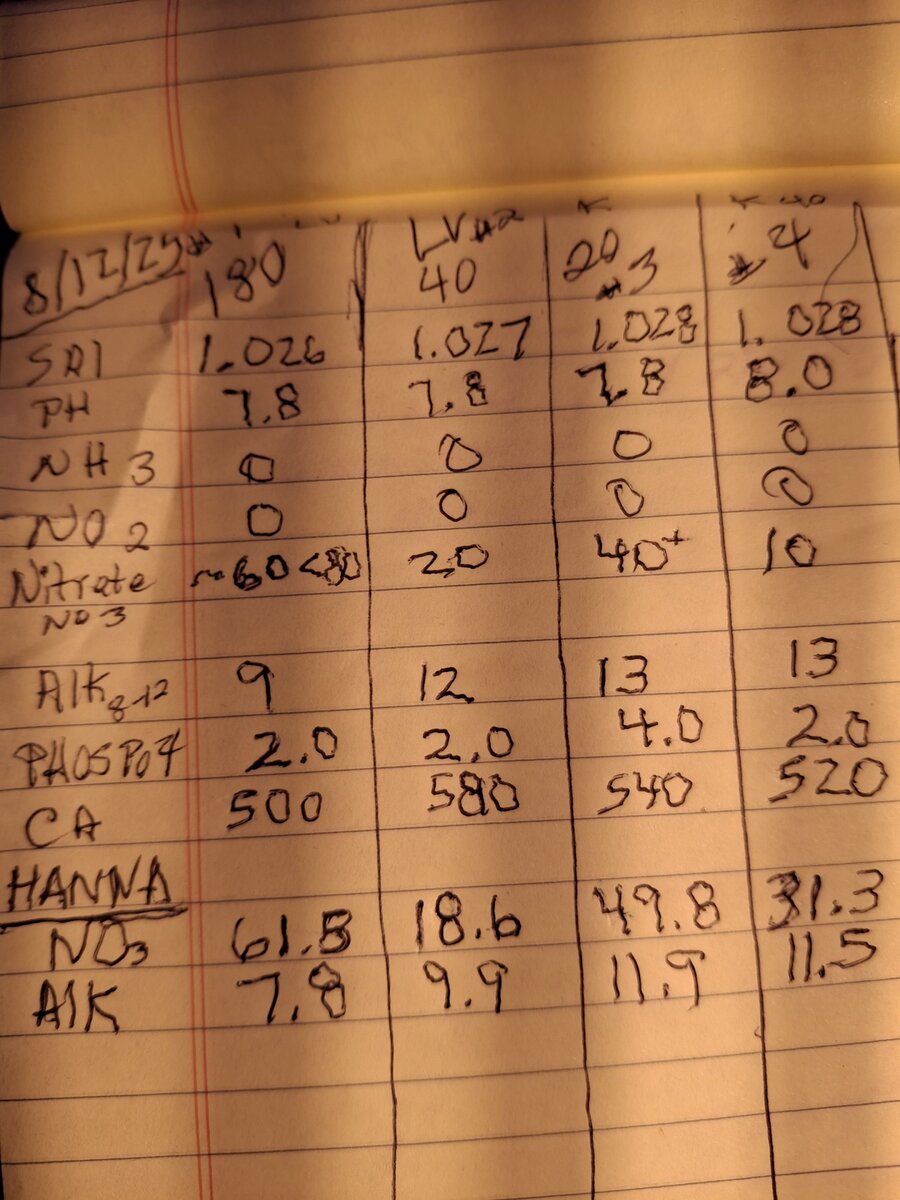 8/12/25 180 LV#2 40 20 #3 # 4
SAl 1.026 1.027 1.028 1.028
PH 7.8 7.8 7.8 8.0
NH3 0 0 0 0
NO2 0 0 0 0
Nitrate ~60<80 20 40+ 10
NO3
AlK 8-12 9 12 13 13
PHOSPO4 2.0 2.0 4.0 2.0
CA 500 580 540 520
HANNA
NO3 61.8 18.6 49.8 31.3
AlK 7.8 9.9 11.9 11.5